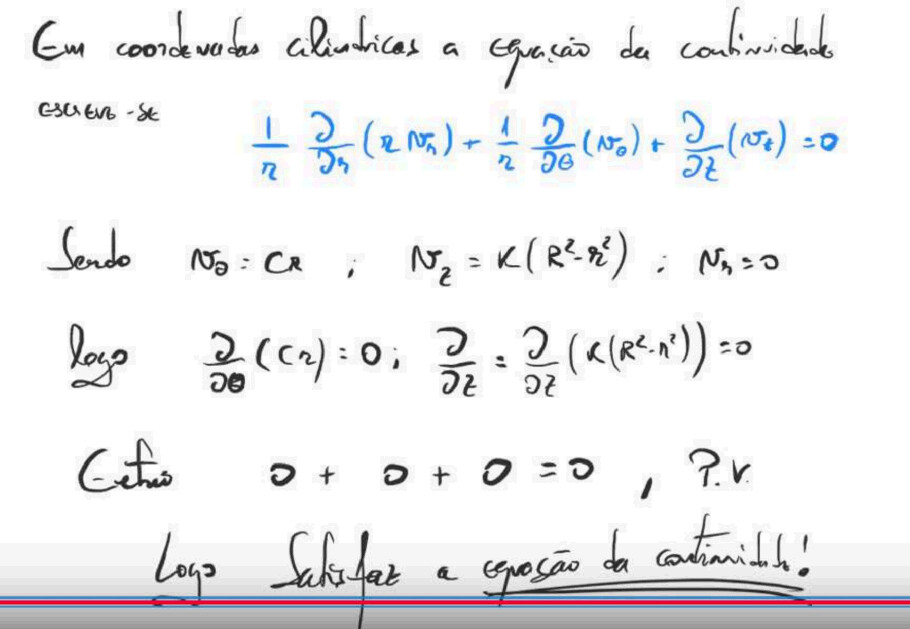 Em coordenadas cilíndricas a equação da continuidade
escreve-se
1/r ∂/∂r (r v_r) + 1/r ∂/∂θ (v_θ) + ∂/∂z (v_z) = 0
Sendo v_θ = Cr ; v_z = K(R² - r²) ; v_r = 0
logo ∂/∂θ (Cr) = 0 ; ∂/∂z = ∂/∂z (K(R² - r²)) = 0
Então 0 + 0 + 0 = 0 , P.V.
Logo Satisfaz a equação da continuidade!